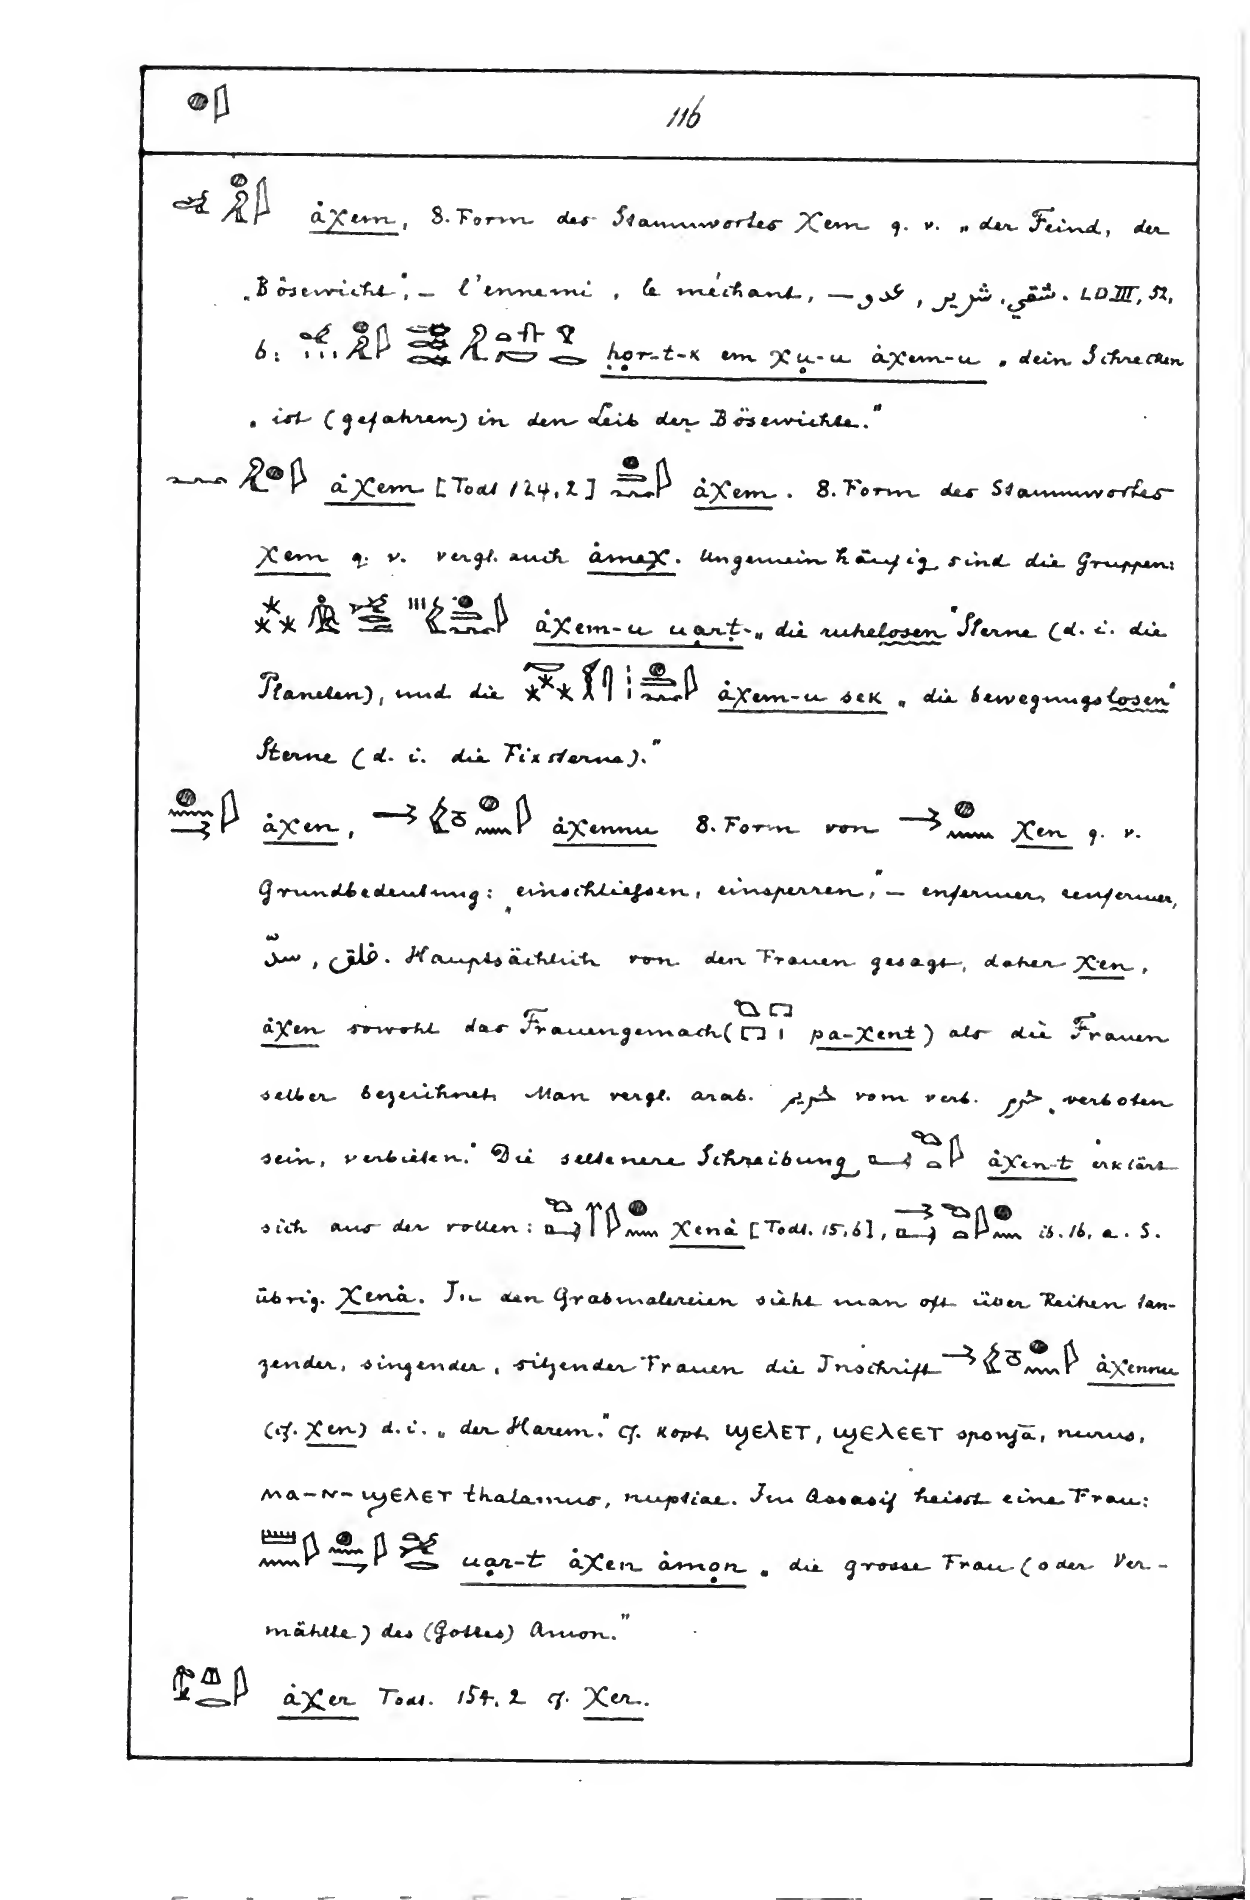 116
ȧχem, 8. Form des Stammwortes χem q. v. „der Feind, der
„Bösewicht", – l'ennemi, le méchant, – شقي, شرير, عدو. LD III, 52,
b: ḥọr-t-k em χụ-u ȧχem-u „dein Schrecken
„ist (gefahren) in den Leib der Bösewichte."
ȧχem [Todt 124,2] ȧχem. 8. Form des Stammwortes
χem q. v. vergl. auch ȧmeχ. Ungemein häufig sind die Gruppen:
ȧχem-u uạrṭ- „die ruhelosen" Sterne (d. i. die
Planeten), und die ȧχem-u sek „die bewegungslosen"
Sterne (d. i. die Fixsterne)."
ȧχen, ȧχennu 8. Form von χen q. v.
Grundbedeutung: „einschliessen, einsperren", – enfermer, renfermer,
سدّ, غلق. Hauptsächlich von den Frauen gesagt, daher χen,
ȧχen sowohl das Frauengemach ( pa-χent) als die Frauen
selber bezeichnet. Man vergl. arab. حريم vom verb. حرم „verboten
sein, verbieten." Die seltenere Schreibung ȧχen-t erklärt
sich aus der vollen: χenȧ [Todt. 15,6], ib. 16, a. S.
übrig. χenȧ. In den Grabmalereien sieht man oft über Reihen tan-
zender, singender, sitzender Frauen die Inschrift ȧχennu
(cf. χen) d. i. „der Harem." cf. kopt. ϣⲉⲗⲉⲧ, ϣⲉⲗⲉⲉⲧ sponsa, nurus,
ⲙⲁ-ⲛ-ϣⲉⲗⲉⲧ thalamus, nuptiae. Im Assasif heisst eine Frau:
uạr-t ȧχen ȧmọn „die grosse Frau (oder Ver-
mählte) des (Gottes) Amon."
ȧχer Todt. 154, 2 cf. χer.